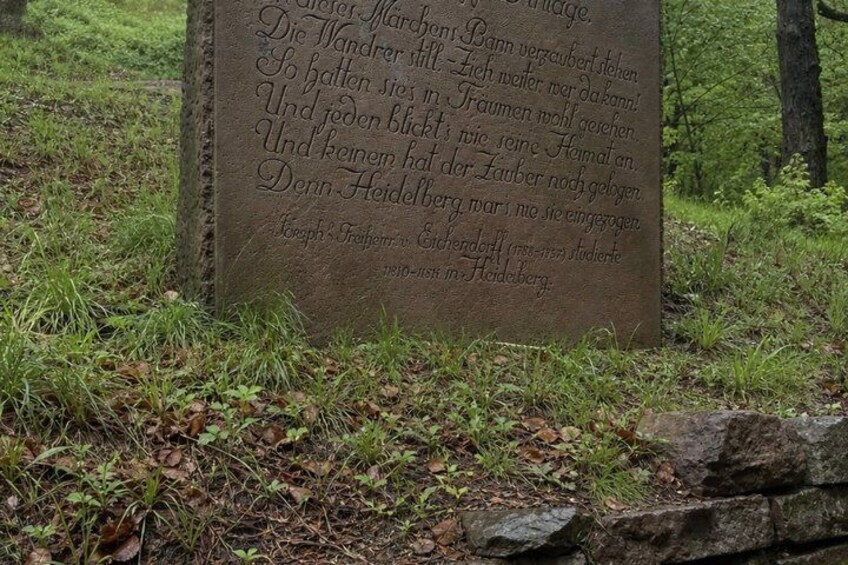 dieses Märchens Bann verzaubert stehen
Die Wandrer still. - Zieh weiter, wer da kann!
So hatten sie's in Träumen wohl gesehen.
Und jeden blickt's wie seine Heimat an,
Und keinem hat der Zauber noch gelogen.
Denn Heidelberg war's, wo sie eingezogen.
Joseph Freiherr v. Eichendorff studierte
in Heidelberg.